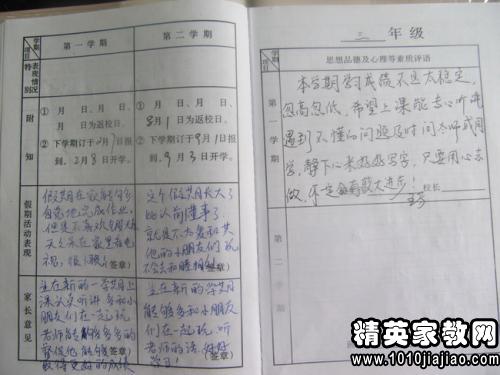 学期
项目
第一学期
第二学期
特别表现情况
附知
① 月 日、 月
日为返校日。
② 下学期订于2月7日报
到、2月8日开学。
① 月 日、 月
8月1日为返校日。
② 下学期订于9月1日报
到、9月3日开学。
假期活动表现
假期在家能够
自觉地完成作业,
但是不喜欢
天天呆在家里看电
视,很
(签章)
这个假期长大了
比以前懂事了,
就是不太爱和其
他的小朋友们玩
不会去和
(签章)
家长意见
在新的一学期上
课认真听讲多和小
朋友们在一起玩
老师能够多多的
督促他能够
取得更好的成绩
(签章)
在新的学期
能够多和小朋友
们在一起玩,听
老师的话,好好
学习!
(签章)
三 年级
学期
项目
思想品德及心理等素质评语
第一学期
本学期学习成绩不是太稳定,
忽高忽低,希望上课能专心听讲
遇到不懂的问题及时问老师或同
学,静下心来热热写字,只要用心去
做,一定会有很大进步!
校长
第二学期
精英家教网
www.1010jiajiao.com